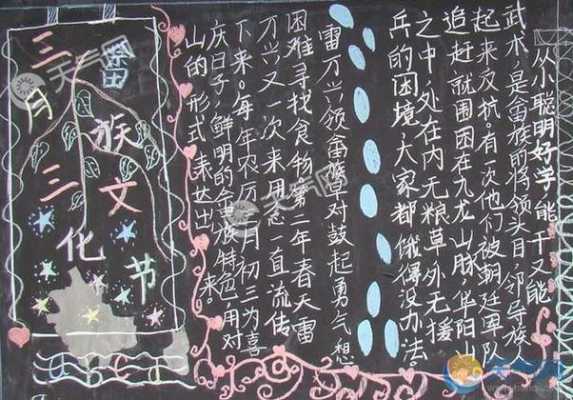 从小聪明好学能干又能
武术，是畲族前将领头目，邻导族人
起来反抗。有次他们被朝廷军队
追赶就围困在九龙山脉，华阳山
之中处在内无粮草外无援
兵的困境，大家都饿得没办法。
雷万兴领畲族对鼓起勇气想
困难寻找食物第二年春天雷
万兴又一次来用念一直流传
下来。每年农历三月初三为喜
庆日子，鲜明的畲族特色用对
山的形式表达出来。
三月三
畲族文化节
天气网